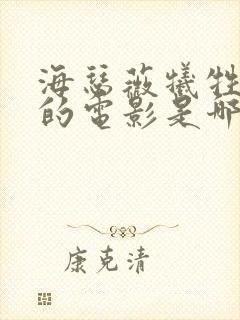 海瑟薇犧牲
的電影是哪
康克清